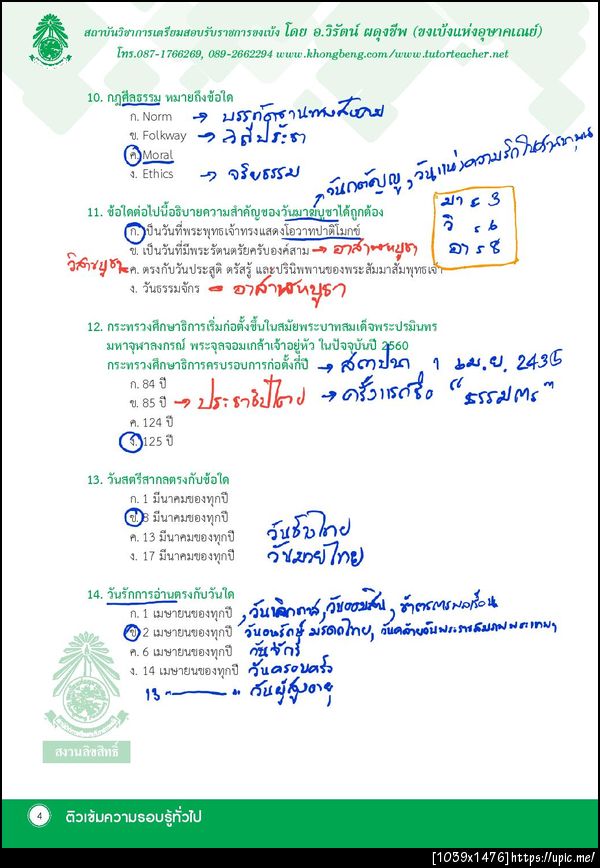 สถาบันวิชาการเตรียมสอบรับราชการขงเบ้ง โดย อ.วิรัตน์ ผดุงชีพ (ขงเบ้งแห่งอุษาคเณย์)
โทร.087-1766269, 089-2662294 www.khongbeng.com/www.tutorteacher.net
10. กฎศีลธรรม หมายถึงข้อใด
ก. Norm → บรรทัดฐานทางสังคม
ข. Folkway → วิถีประชา
ค. Moral
ง. Ethics → จริยธรรม
วันกตัญญู, วันแห่งความรัก
11. ข้อใดต่อไปนี้อธิบายความสำคัญของวันมาฆบูชาได้ถูกต้อง
มา ร 3
วิ ร 6
อา ร 8
ก. เป็นวันที่พระพุทธเจ้าทรงแสดงโอวาทปาติโมกข์
ข. เป็นวันที่มีพระรัตนตรัยครบองค์สาม → อาสาฬหบูชา
วิสาขบูชา ค. ตรงกับวันประสูติ ตรัสรู้ และปรินิพพานของพระสัมมาสัมพุทธเจ้า
ง. วันธรรมจักร → อาสาฬหบูชา
12. กระทรวงศึกษาธิการเริ่มก่อตั้งขึ้นในสมัยพระบาทสมเด็จพระปรมินทร
มหาจุฬาลงกรณ์ พระจุลจอมเกล้าเจ้าอยู่หัว ในปัจจุบันปี 2560
กระทรวงศึกษาธิการครบรอบการก่อตั้งกี่ปี → สถาปนา 1 เม.ย. 2435
ก. 84 ปี
ข. 85 ปี → ประชาธิปไตย → ครั้งแรกชื่อ "ธรรมการ"
ค. 124 ปี
ง. 125 ปี
13. วันสตรีสากลตรงกับข้อใด
ก. 1 มีนาคมของทุกปี
ข. 8 มีนาคมของทุกปี
ค. 13 มีนาคมของทุกปี วันช้างไทย
ง. 17 มีนาคมของทุกปี วันมวยไทย
14. วันรักการอ่านตรงกับวันใด
ก. 1 เมษายนของทุกปี , วันเลิกทาส, วันออมสิน, ข้าราชการพลเรือน
ข. 2 เมษายนของทุกปี วันอนุรักษ์มรดกไทย, วันคล้ายวันพระราชสมภพพระเทพฯ
ค. 6 เมษายนของทุกปี วันจักรี
ง. 14 เมษายนของทุกปี วันครอบครัว
13 —— " วันผู้สูงอายุ
สงวนลิขสิทธิ์
4 ติวเข้มความรอบรู้ทั่วไป
[1039x1476]https://upic.me/